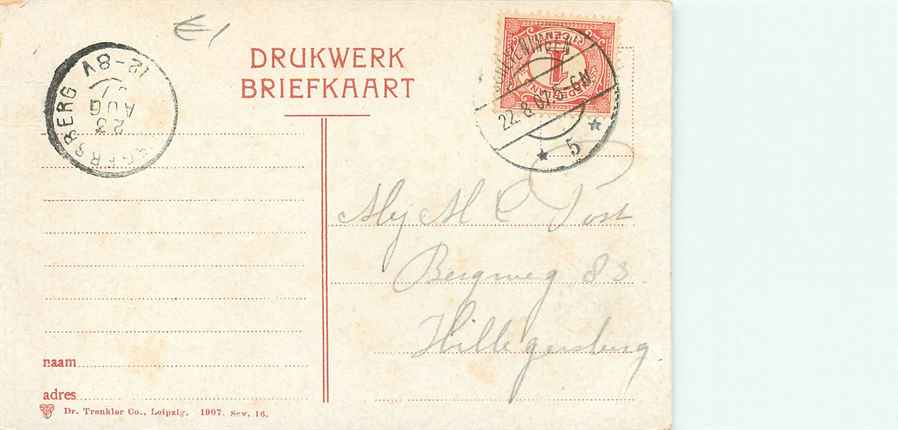 €1
DRUKWERK
BRIEFKAART
12-8V
23
AUG
07
GERSBERG
1
22.8.07.5-6N
5
Mej M C Post
Bergweg 83
Hillegersberg.
naam
adres
Dr. Trenkler Co., Leipzig. 1907. Sew. 16.